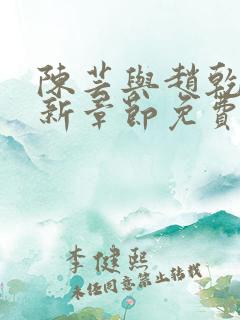 陳芸與趙乾
新章節免費
李健熙
未經同意禁止轉載